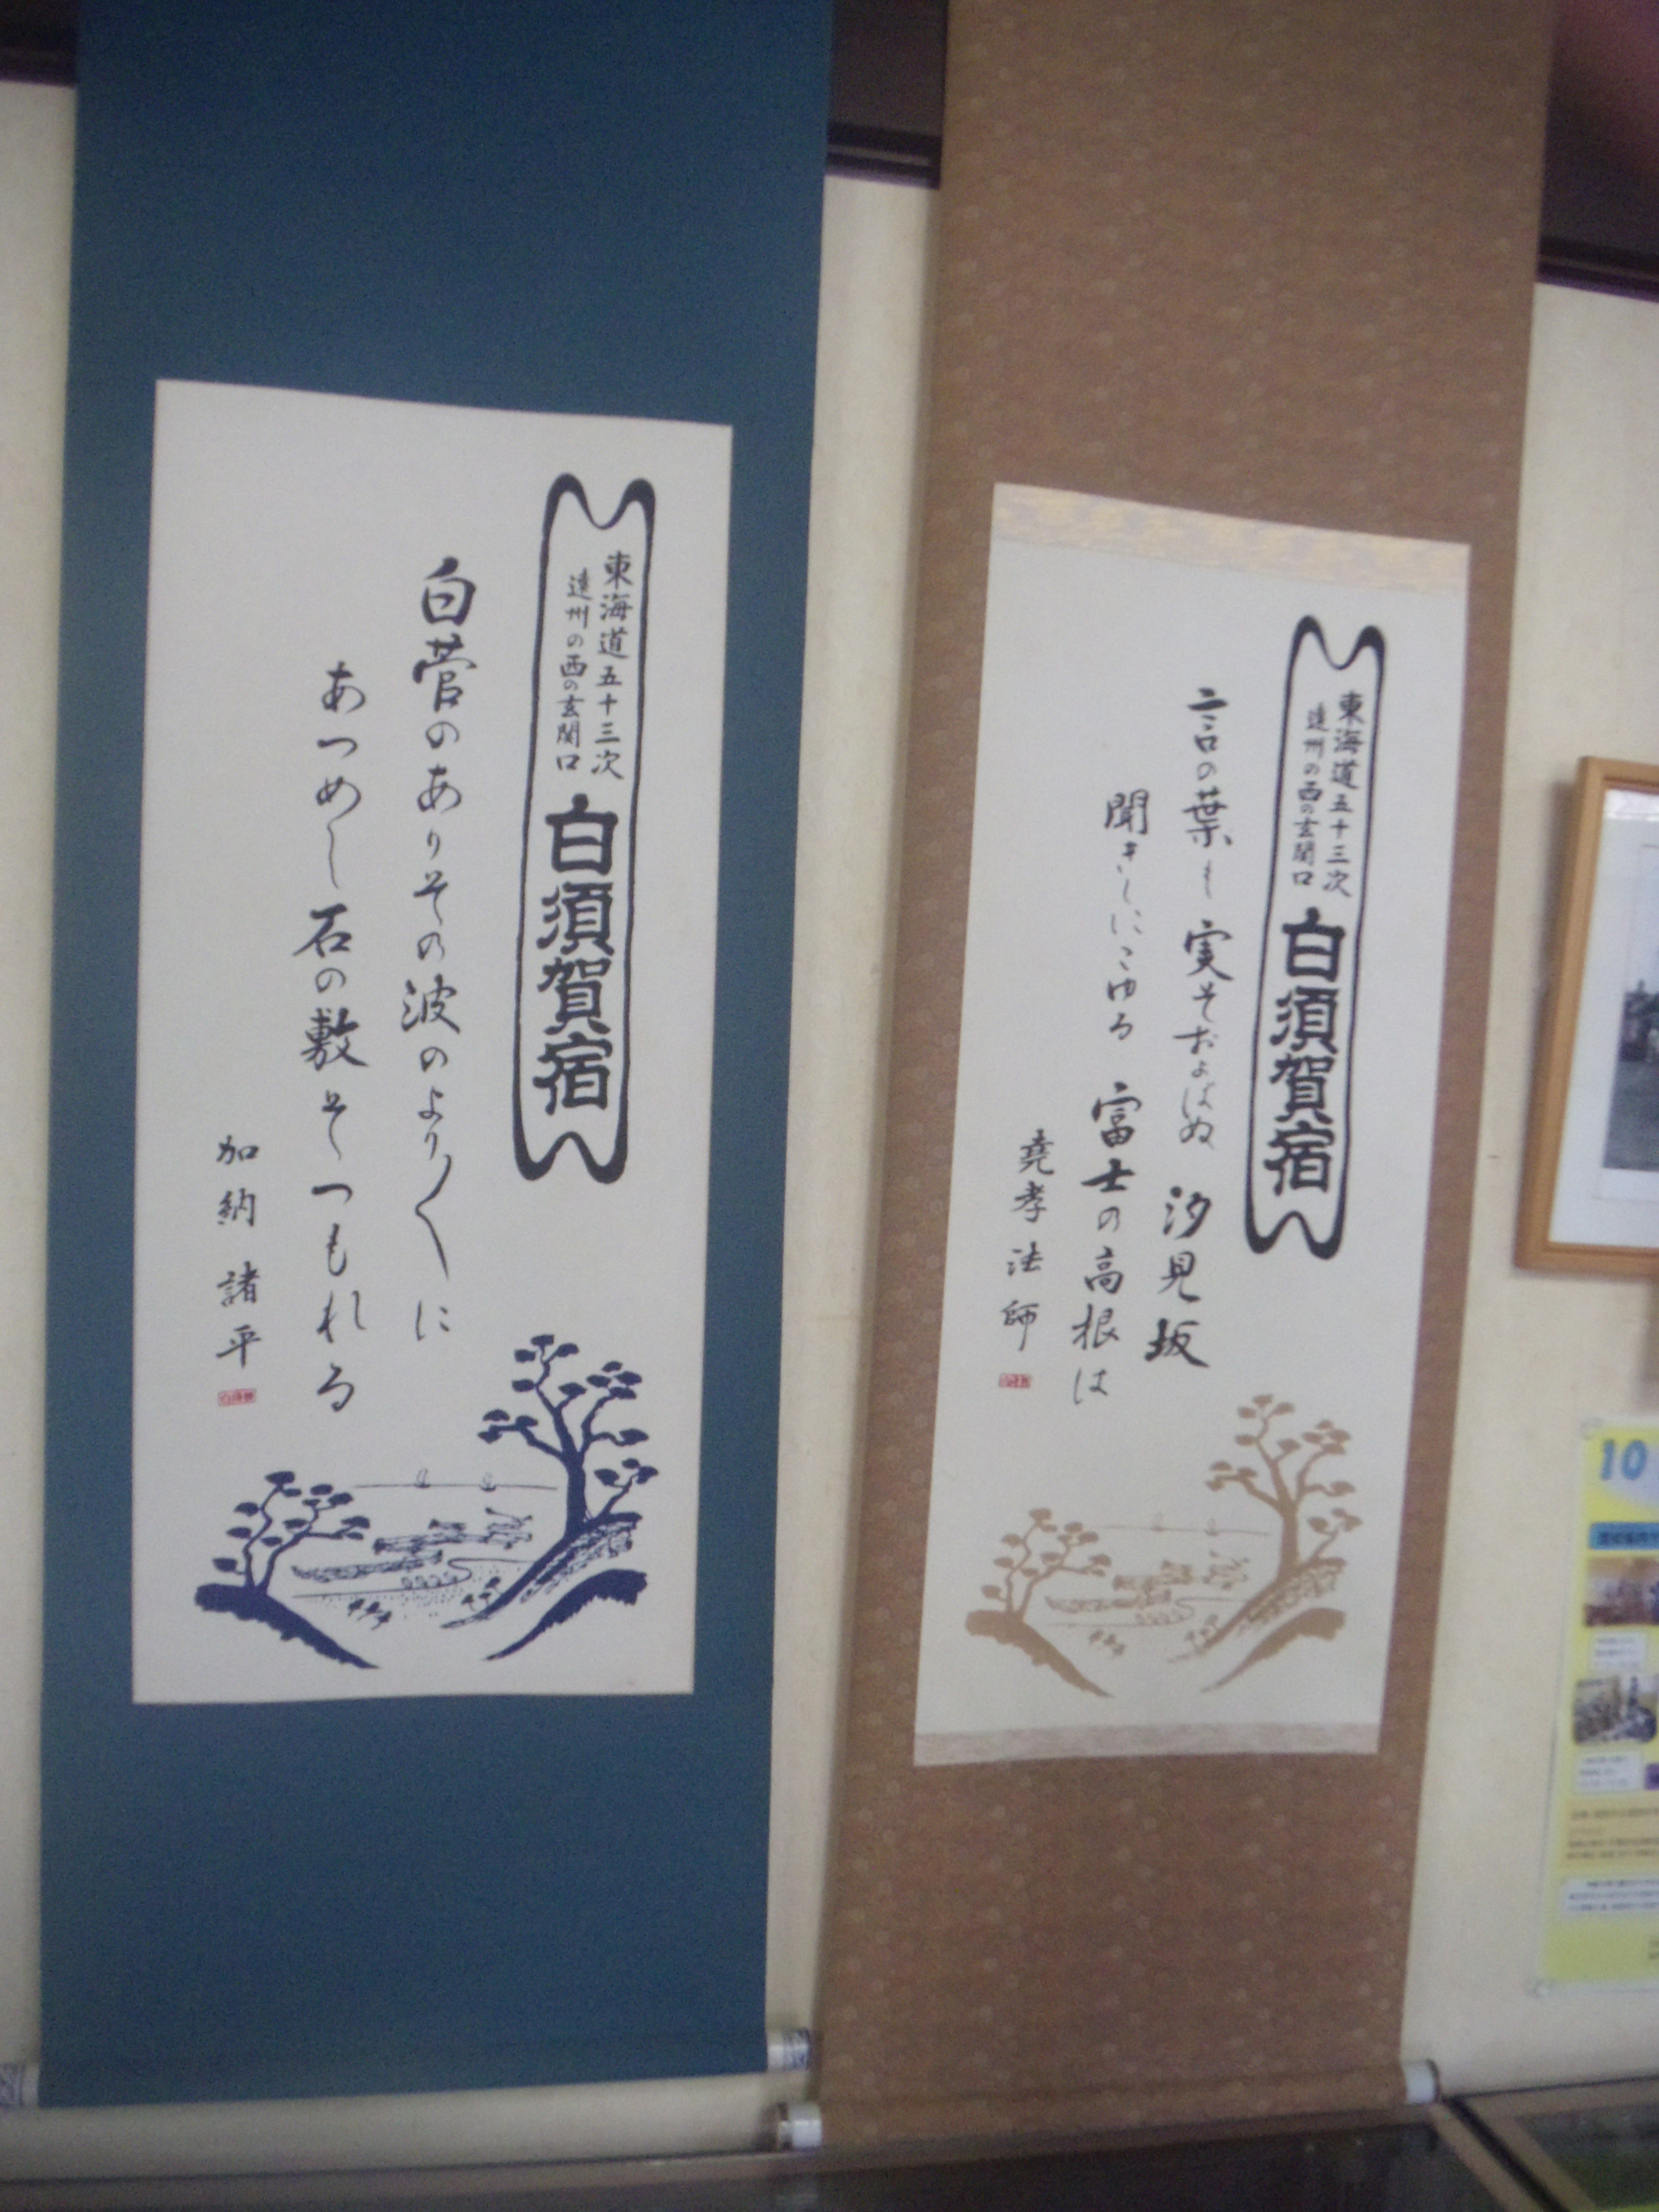 東海道五十三次
遠州の西の玄関口
白須賀宿
言の葉も実そおよばぬ 汐見坂
聞きしにこゆる 富士の高根は
堯孝法師
東海道五十三次
遠州の西の玄関口
白須賀宿
白菅のありその波のより〱に
あつめし石の敷そつもれる
加納諸平
10